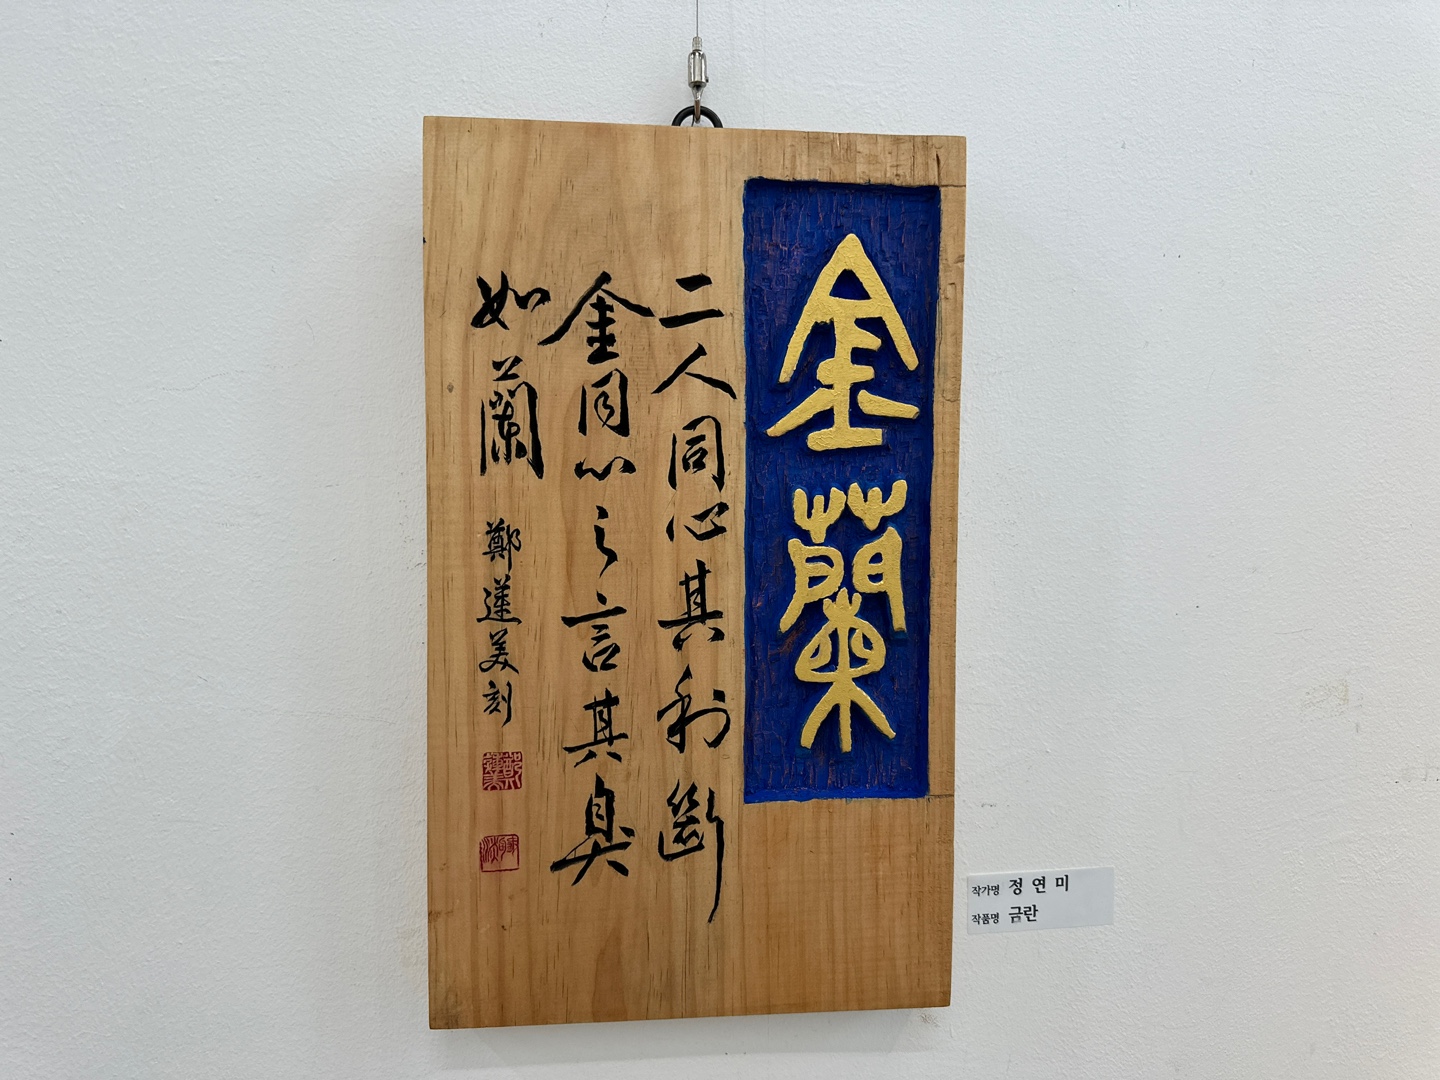 金蘭
二人同心其利斷
金同心之言其臭
如蘭 鄭蓮美刻
작가명 정 연 미
작품명 금란